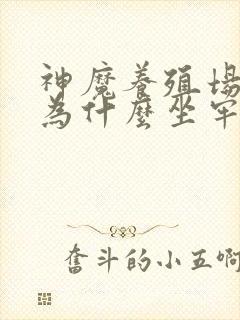 神魔養殖場
為什麼坐牢
奮斗的小五啊